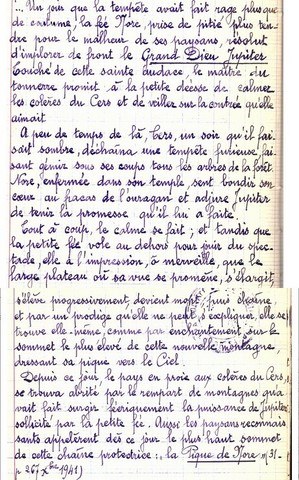 ... Un jour que la tempête avait fait rage plus que
de coutume, la fée Nore, prise de pitié plus ten-
dre pour le malheur de ses paysans, résolut
d'implorer de front le Grand Dieu Jupiter
Touché de cette sainte audace, le maître du
tonnerre promit à la petite déesse de calmer
les colères du Cers et de veiller sur la contrée qu'elle
aimait
A peu de temps de là Cers, un soir qu'il fai-
sait sombre, déchaîna une tempête furieuse, fai-
sant gémir sous ses coups tous les arbres de la forêt.
Nore, enfermée dans son temple sent bondir son
cœur au fracas de l'ouragan et adjure Jupiter
de tenir la promesse qu'il lui a faite.
Tout à coup, le calme se fait ; et tandis que
la petite fée vole au dehors pour jouir du spec-
tacle, elle a l'impression, ô merveille, que le
large plateau où sa vue se promène, s'élargit,
s'élève progressivement, devient mont, puis chaîne
et par un prodige qu'elle ne peut s'expliquer, elle se
trouve elle-même, comme par enchantement, sur le
sommet le plus élevé de cette nouvelle montagne,
dressant sa pique vers le Ciel.
Depuis ce jour, le pays en proie aux colères du Cers,
se trouva abrité par le rempart de montagnes qu'a
vait fait surgir féeriquement la puissance de Jupiter
sollicité par la petite fée. Aussi les paysans reconnais
sants appelèrent dès ce jour le plus haut sommet
de cette chaîne protectrice : la Pique de Nore (n° 31-
p 267 Xbre 1941)